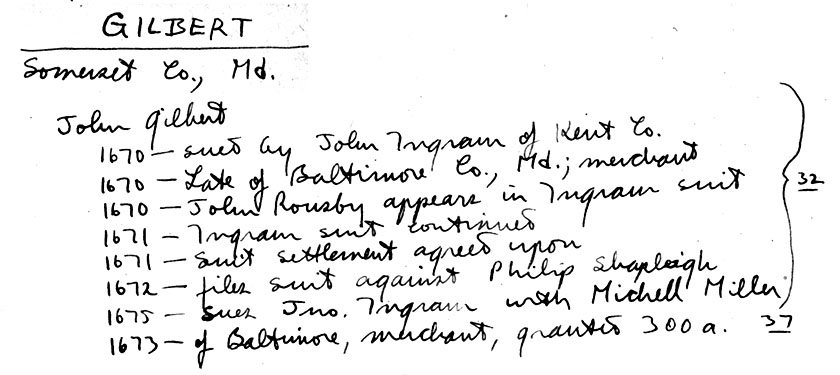 GILBERT
Somerset Co., Md.
John Gilbert
1670 – sued by John Ingram of Kent Co.
1670 – Late of Baltimore Co., Md.; merchant
1670 – John Rousby appears in Ingram suit
1671 – Ingram suit continued
1671 – suit settlement agreed upon
1672 – files suit against Philip Shapleigh
1675 – sues Jno. Ingram with Michell Miller
1673 – of Baltimore, merchant, granted 300 a. 37
32